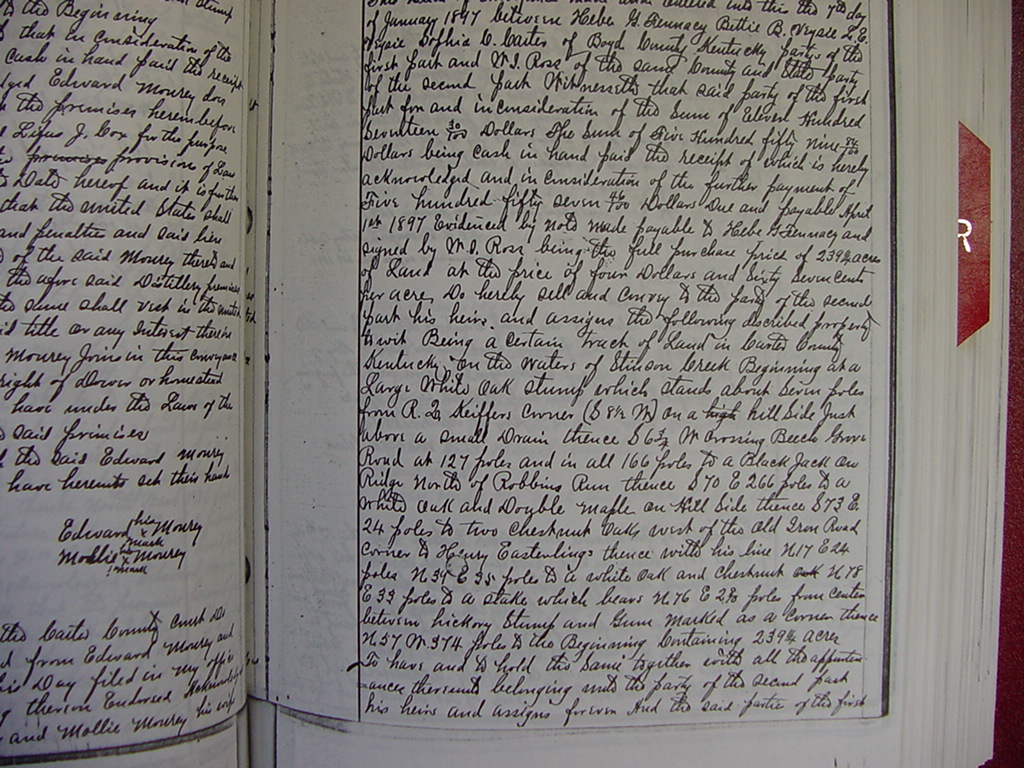 to the Beginning
that in consideration of the
Cash in hand paid the receipt
Edward Mourey does
the premises herein before
Lifus J. Cox for the purpose
premises provision of Law
Date hereof and it is further
that the united States shall
and penalties and said lien
of the said Mourey thereto and
the afore said Distillery premises
the same shall vest in the united
title or any Interest therein
Mourey Joins in this conveyance
right of dower or homestead
have under the Laws of the
said premises
the said Edward Mourey
have hereunto set their hand
Edward his x mark Mourey
Mollie her x mark Mourey
the Carter County Court do
from Edward Mourey and
Day filed in my office
thereon Endorsed
and Mollie Mourey his wife
made and entered into this the 7th day
of January 1897 between Hebe G. Flennacy Bittie B. Veysie L. E.
Veysie Sophia C. Carter of Boyd County Kentucky party of the
first part and W. S. Ross of the same County and State party
of the second part Witnesseth that said party of the first
part for and in consideration of the Sum of Eleven Hundred
Seventeen 30/100 Dollars The sum of Five Hundred fifty nine
Dollars being Cash in hand paid the receipt of which is hereby
acknowledged and in Consideration of the further payment of
Five hundred fifty seven Dollars Due and payable April
1st 1897 Evidenced by note made payable to Hebe G Flennacy and
signed by W. S. Ross being the full purchase price of 239¼ acres
of Land at the price of four Dollars and Sixty Seven Cents
per acre, Do hereby sell and Convey to the party of the second
part his heirs and assigns the following described property
to wit Being a Certain tract of Land in Carter County
Kentucky On the waters of Stinson Creek Beginning at a
Large White Oak Stump which stands about Seven poles
from R. Q. Keiffers Corner (S 8½ W) on a high hill Side Just
above a small Drain thence S 6¾ W Crossing Beech Grove
Road at 127 poles and in all 166 poles to a Black Jack on
Ridge North of Robbins Run thence S 70 E 266 poles to a
White Oak and Double maple on Hill Side thence S 73 E
24 poles to two Chestnut Oaks west of the Old Iron Road
Corner to Henry Easterlings thence with his line N 17 E 24
poles N 34 E 35 poles to a white Oak and Chestnut oak N 78
E 33 poles to a stake which bears N 76 E poles from Center
between hickory Stump and Gum Marked as a Corner thence
N 57 W 374 poles to the Beginning Containing 239¼ acres
To have and to hold the Same together with all the appurten
ances thereunto belonging unto the party of the second part
his heirs and assigns forever And the said partie of the first
R